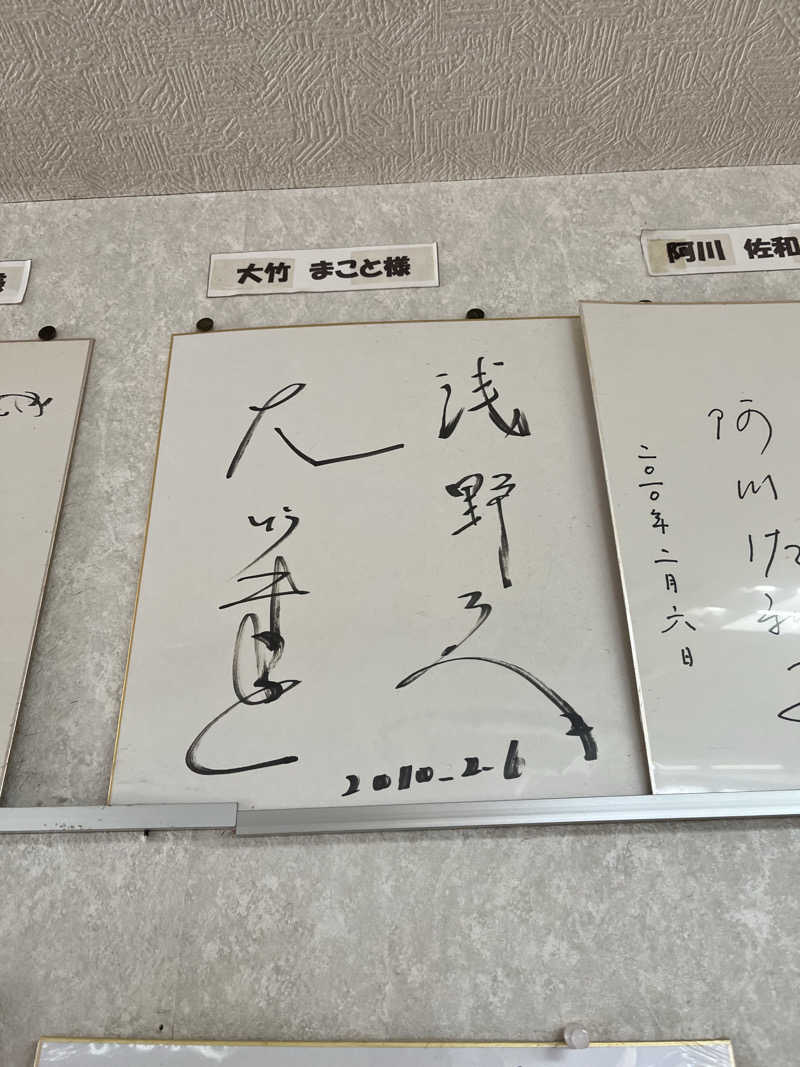 様
大竹 まこと様
阿川 佐和
浅野
大竹
2010.2.6
阿川佐和
二〇一〇年二月六日